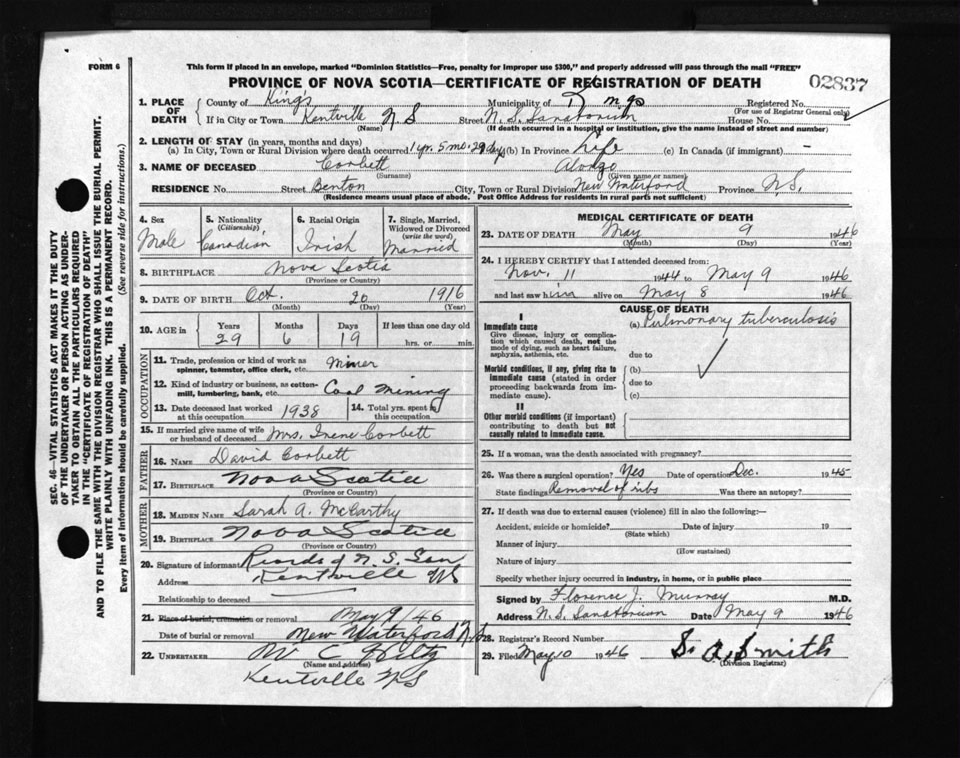 FORM 6
This form if placed in an envelope, marked "Dominion Statistics—Free, penalty for improper use $300," and properly addressed will pass through the mail "FREE"
PROVINCE OF NOVA SCOTIA—CERTIFICATE OF REGISTRATION OF DEATH
02837
1. PLACE OF DEATH County of King's Municipality of Registered No.
(For use of Registrar General only)
If in City or Town Kentville N S Street N. S. Sanatorium House No.
(Name) (If death occurred in a hospital or institution, give the name instead of street and number)
2. LENGTH OF STAY (in years, months and days)
(a) In City, Town or Rural Division where death occurred 1 yr. 5 mo. 29 days (b) In Province Life (c) In Canada (if immigrant) —
3. NAME OF DECEASED Corbett Alonzo
(Surname) (Given name or names)
RESIDENCE No. Street Benton City, Town or Rural Division New Waterford Province N.S.
(Residence means usual place of abode. Post Office Address for residents in rural parts not sufficient)
4. Sex Male
5. Nationality (Citizenship) Canadian
6. Racial Origin Irish
7. Single, Married, Widowed or Divorced (write the word) Married
8. BIRTHPLACE Nova Scotia
(Province or Country)
9. DATE OF BIRTH Oct. 20 1916
(Month) (Day) (Year)
10. AGE in Years Months Days If less than one day old
29 6 19 hrs. or min.
OCCUPATION
11. Trade, profession or kind of work as spinner, teamster, office clerk, etc. Miner
12. Kind of industry or business, as cotton-mill, lumbering, bank, etc. Coal Mining
13. Date deceased last worked at this occupation 1938
14. Total yrs. spent in this occupation
15. If married give name of wife or husband of deceased Mrs. Irene Corbett
FATHER
16. NAME David Corbett
17. BIRTHPLACE Nova Scotia
(Province or Country)
MOTHER
18. MAIDEN NAME Sarah A. McCarthy
19. BIRTHPLACE Nova Scotia
(Province or Country)
20. Signature of informant Records of N. S. San
Address Kentville NS
Relationship to deceased
21. Place of burial, cremation or removal May 9/46
Date of burial or removal New Waterford N.S
22. UNDERTAKER W C Hiltz
(Name and address)
Kentville NS
MEDICAL CERTIFICATE OF DEATH
23. DATE OF DEATH May 9 1946
(Month) (Day) (Year)
24. I HEREBY CERTIFY that I attended deceased from:
Nov. 11 1944 to May 9 1946
and last saw him alive on May 8 1946
CAUSE OF DEATH
I
Immediate cause (a) Pulmonary tuberculosis
Give disease, injury or complication which caused death, not the mode of dying, such as heart failure, asphyxia, asthenia, etc.
due to
Morbid conditions, if any, giving rise to immediate cause (stated in order proceeding backwards from immediate cause).
(b)
due to
(c)
II
Other morbid conditions (if important) contributing to death but not causally related to immediate cause.
25. If a woman, was the death associated with pregnancy?
26. Was there a surgical operation? Yes Date of operation Dec. 1945
State findings Removal of ribs Was there an autopsy?
27. If death was due to external causes (violence) fill in also the following:—
Accident, suicide or homicide? Date of injury 19
(State which)
Manner of injury
(How sustained)
Nature of injury
Specify whether injury occurred in industry, in home, or in public place
Signed by Florence J. Murray M.D.
Address N. S. Sanatorium Date May 9 1946
28. Registrar's Record Number
29. Filed May 10 1946 S. A. Smith
(Division Registrar)
SEC. 46—VITAL STATISTICS ACT MAKES IT THE DUTY OF THE UNDERTAKER OR PERSON ACTING AS UNDERTAKER TO OBTAIN ALL THE PARTICULARS REQUIRED IN THE "CERTIFICATE OF REGISTRATION OF DEATH" AND TO FILE THE SAME WITH THE DIVISION REGISTRAR WHO SHALL ISSUE THE BURIAL PERMIT.
WRITE PLAINLY WITH UNFADING INK. THIS IS A PERMANENT RECORD.
Every item of information should be carefully supplied. (See reverse ride for instructions.)